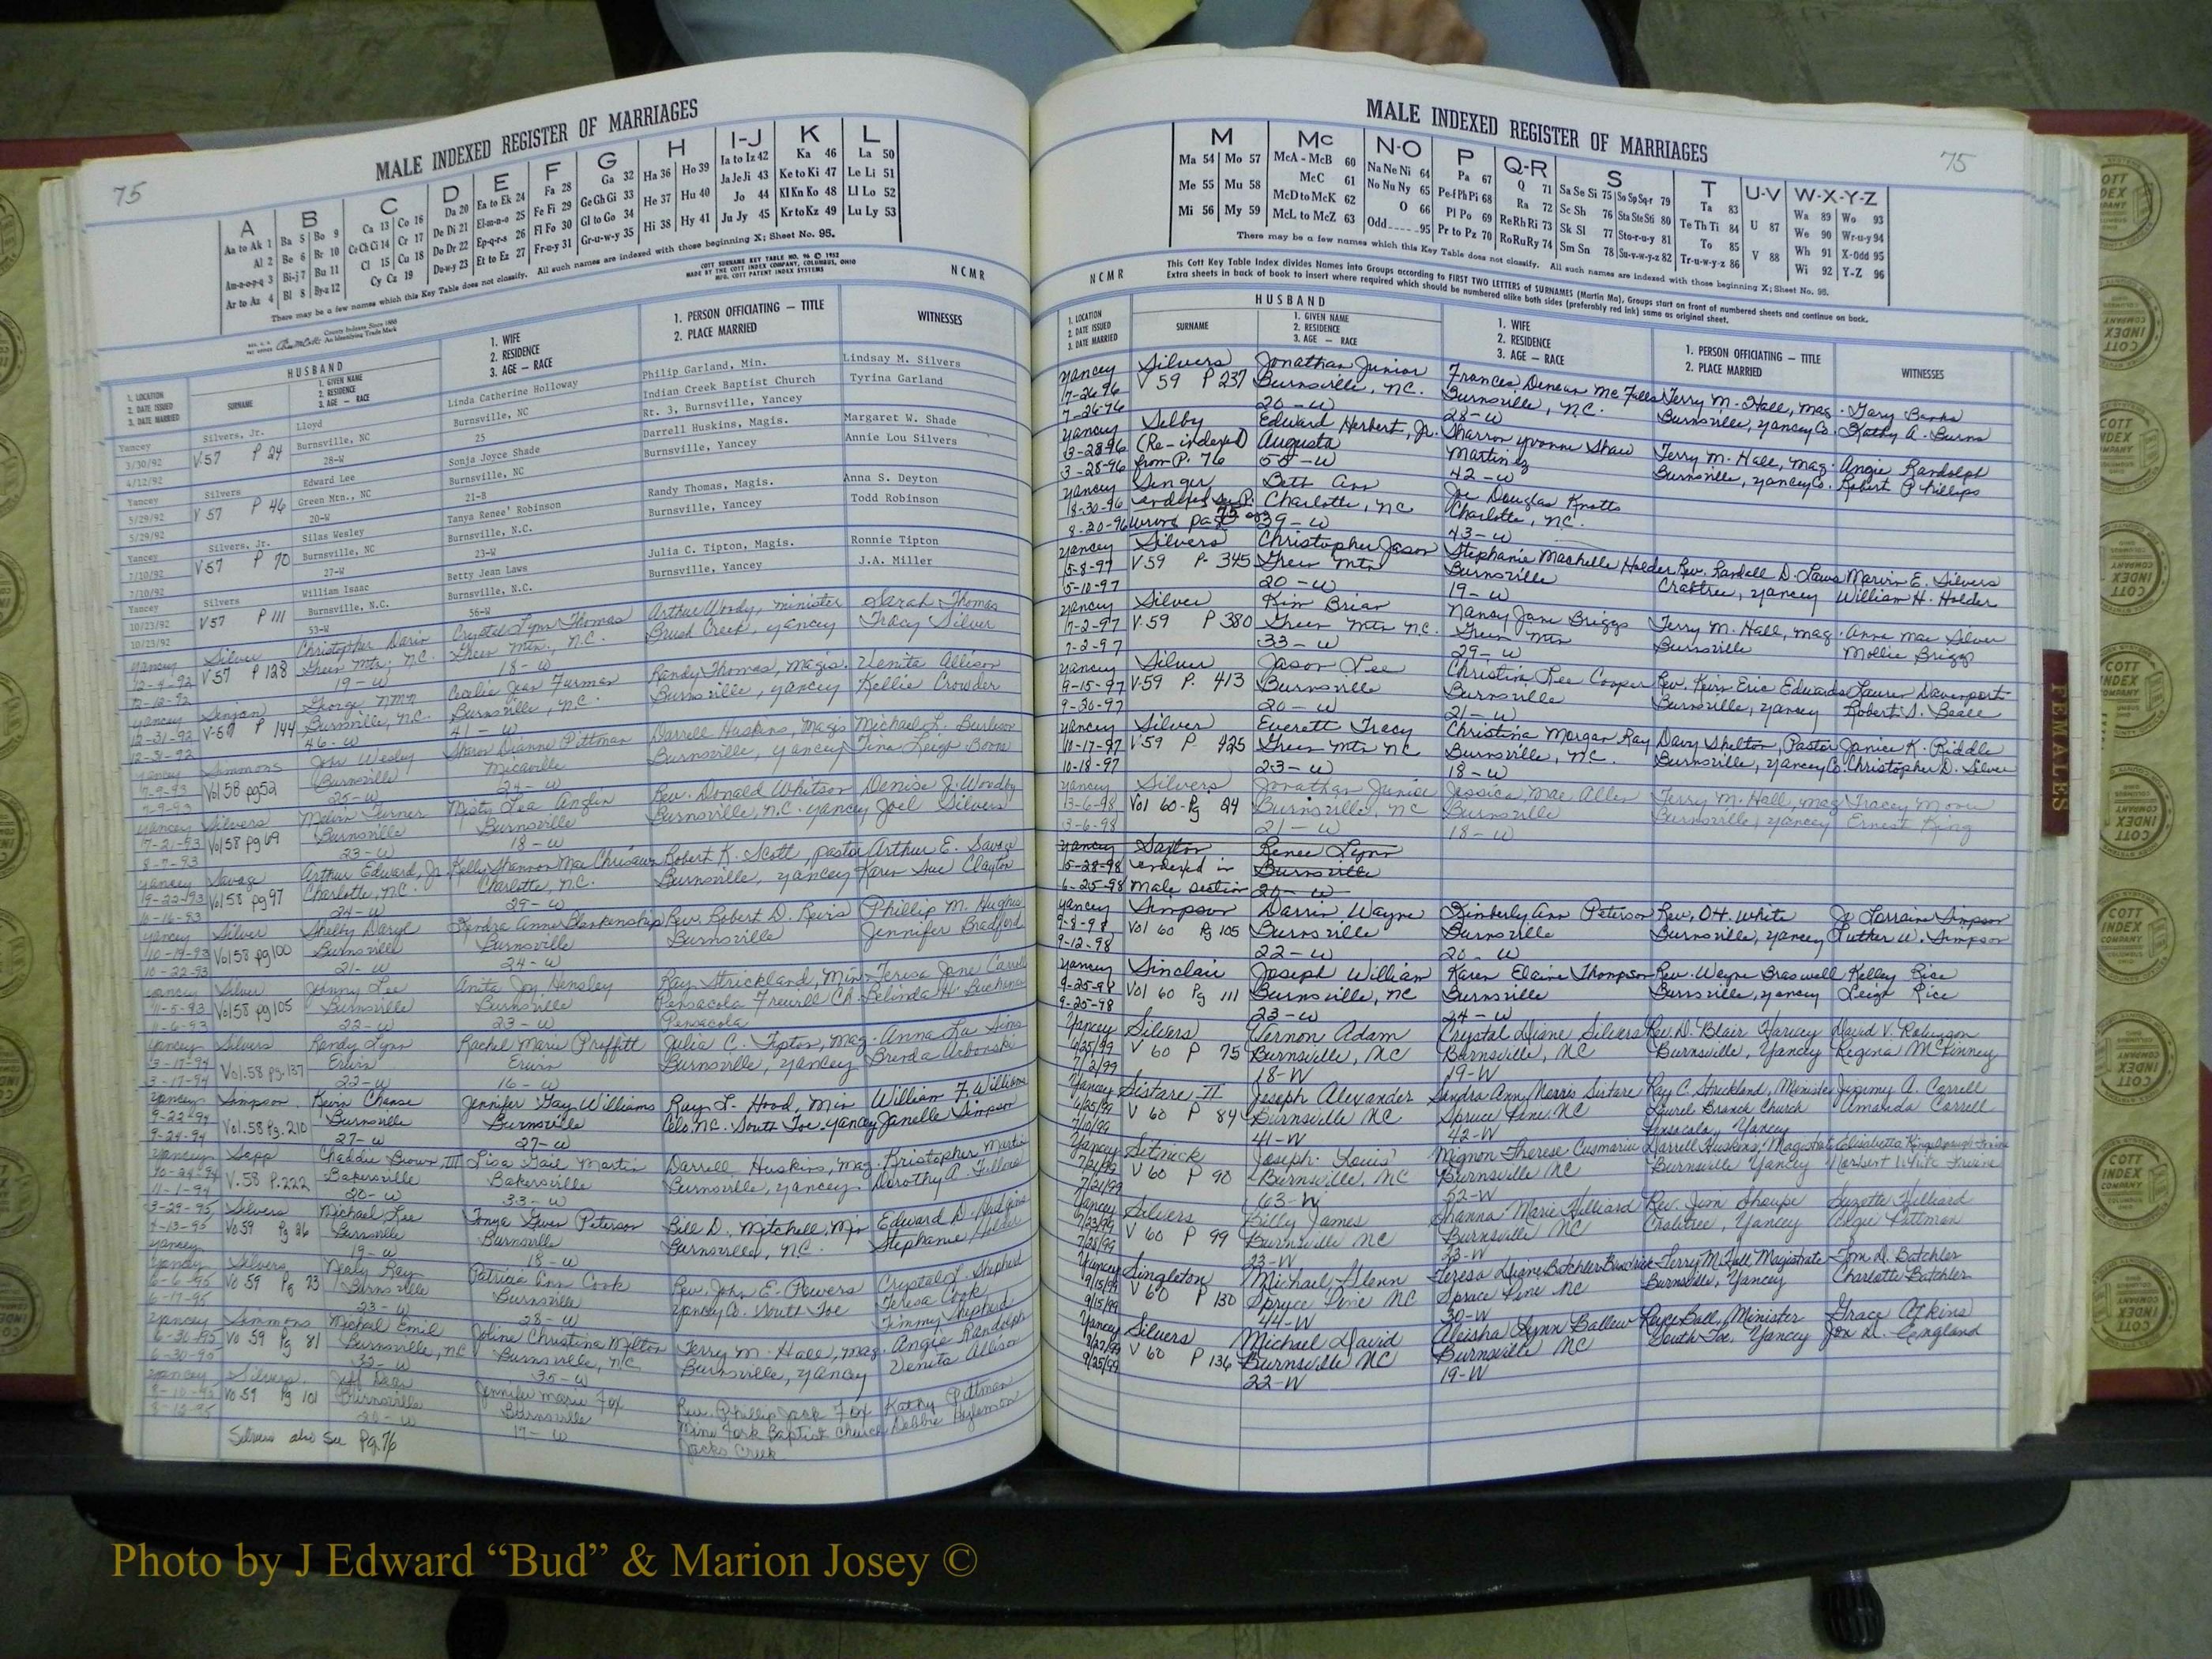 75
MALE INDEXED REGISTER OF MARRIAGES
A B C D E F G H I-J K L
Aa to Ak 1 Ba 5 Bo 9 Ca 13 Co 16 Da 20 Ea to Ek 24 Fa 28 Ga 32 Ha 36 Ho 39 Ia to Iz 42 Ka 46 La 50
Al 2 Be 6 Br 10 Ce Ch Ci 14 Cr 17 De Di 21 El-m-n-o 25 Fe Fi 29 Ge Gh Gi 33 He 37 Hu 40 Ja Je Ji 43 Ke to Ki 47 Le Li 51
Am-n-o-p-q 3 Bi-j 7 Bu 11 Cl 15 Cu 18 Do Dr 22 Ep-q-r-s 26 Fl Fo 30 Gl to Go 34 Hi 38 Hy 41 Jo 44 Kl Kn Ko 48 Ll Lo 52
Ar to Az 4 Bl 8 By-z 12 Cy Cz 19 Du-w-y 23 Et to Ez 27 Fr-u-y 31 Gr-u-w-y 35 Ju Jy 45 Kr to Kz 49 Lu Ly 53
There may be a few names which this Key Table does not classify. All such names are indexed with those beginning X; Sheet No. 95.
COTT SURNAME KEY TABLE NO. 96 © 1952
MADE BY THE COTT INDEX COMPANY, COLUMBUS, OHIO
MFG. COTT PATENT INDEX SYSTEMS
NCMR
County Indexes Since 1888
An Identifying Trade Mark
1. LOCATION
2. DATE ISSUED
3. DATE MARRIED
HUSBAND
SURNAME
1. GIVEN NAME
2. RESIDENCE
3. AGE — RACE
1. WIFE
2. RESIDENCE
3. AGE — RACE
1. PERSON OFFICIATING — TITLE
2. PLACE MARRIED
WITNESSES
Yancey Silvers, Jr. Lloyd Linda Catherine Holloway Philip Garland, Min. Lindsay M. Silvers
3/30/92 V57 P 24 Burnsville, NC Burnsville, NC Indian Creek Baptist Church Tyrina Garland
4/12/92 28-W 25 Rt. 3, Burnsville, Yancey
Yancey Silvers Edward Lee Sonja Joyce Shade Darrell Huskins, Magis. Margaret W. Shade
5/29/92 V 57 P 46 Green Mtn., NC Burnsville, NC Burnsville, Yancey Annie Lou Silvers
5/29/92 20-W 21-B
Yancey Silvers, Jr. Silas Wesley Tanya Renee' Robinson Randy Thomas, Magis. Anna S. Deyton
7/10/92 V57 P 70 Burnsville, NC Burnsville, N.C. Burnsville, Yancey Todd Robinson
7/10/92 27-W 23-W
Yancey Silvers William Isaac Betty Jean Laws Julia C. Tipton, Magis. Ronnie Tipton
10/23/92 V57 P 111 Burnsville, N.C. Burnsville, N.C. Burnsville, Yancey J.A. Miller
10/23/92 53-W 56-W
Yancey Silver Christopher Darin Crystal Lynn Thomas Arthur Woody, minister Sarah Thomas
12-4-92 V57 P 128 Green Mtn., N.C. Green Mtn., N.C. Brush Creek, Yancey Tracy Silver
19-W 18-W
Yancey George NMN Cecelie Jean Furman Randy Thomas, Magis. Venita Allison
12-31-92 P 144 Burnsville, N.C. Burnsville, N.C. Burnsville, Yancey Kellie Crowder
12-31-92 46-W 41-W
Yancey Simmons John Wesley Sharon Dianne Pittman Darrell Huskins, Magis Michael L. Burleson
7-9-93 Vol 58 pg 52 Burnsville Micaville Burnsville, Yancey Tina Leigh Boone
7-9-93 25-W 24-W
Yancey Silvers Turner Misty Lea Anglin Rev. Donald Whitson Denise J. Woodby
7-21-93 Vol 58 pg 69 Burnsville Burnsville Burnsville, N.C. Yancey Joel Silvers
8-7-93 23-W 18-W
Yancey Savage Arthur Edward, Jr. Kelly Shannon Mae Robert K. Scott, pastor Arthur E. Savage
Vol 58 pg 97 Charlotte, N.C. Charlotte, N.C. Burnsville, Yancey Karen Sue Clayton
10-16-93 24-W 29-W
Yancey Silver Shelby Daryl Kendra Anne Blankenship Rev. Robert D. Revis Phillip M. Hughes
10-19-93 Vol 58 pg 100 Burnsville Burnsville Burnsville Jennifer Bradford
10-22-93 21-W 24-W
Yancey Silver Jonny Lee Anita Joy Hensley Ray Strickland, Min Teresa Jane Carroll
11-5-93 Vol 58 pg 105 Burnsville Burnsville Pensacola Freewill Ch. Belinda H. Buchanan
11-6-93 22-W 23-W Pensacola
Yancey Silvers Randy Lynn Rachel Marie Proffitt Julia C. Tipton, Mag. Anna La Sims
3-17-94 Vol. 58 pg. 137 Erwin Erwin Burnsville, Yancey Brenda
3-17-94 22-W 16-W
Yancey Simpson Kevin Chasse Jennifer Gay Williams Ray L. Hood, Min William F. Williams
9-22-94 Vol. 58 Pg. 210 Burnsville Burnsville Celo, NC. South Toe, Yancey Janelle Simpson
9-24-94 27-W 27-W
Yancey Sapp Chaddie Brown, III Lisa Gail Martin Darrell Huskins, Mag. Kristopher Martin
10-24-94 V. 58 P. 222 Bakersville Bakersville Burnsville, Yancey Dorothy A.
11-1-94 20-W 33-W
3-29-95 Silvers Michael Lee Tonya Peterson Bill D. Mitchell, Min Edward D. Hudgins
4-13-95 Vo 59 Pg 26 Burnsville Burnsville Burnsville, N.C. Stephanie Holder
Yancey 19-W 18-W
Yancey Silvers Nealy Ray Patricia Ann Cook Rev. John E. Powers Crystal L. Shepherd
6-6-95 Vo 59 Pg 23 Burnsville Burnsville Yancey Co. South Toe Teresa Cook
6-17-95 23-W 28-W Timmy Shepherd
Yancey Simmons Michael Emil Joline Christina Milton Terry M. Hall, Mag. Angie Randolph
6-30-95 Vo 59 Pg 81 Burnsville, NC Burnsville, NC Burnsville, Yancey Venita Allison
6-30-95 32-W 35-W
Yancey Silvers Jeff Dean Jennifer Marie Fox Rev. Phillip Jack Fox Kathy Pittman
Vo 59 Pg 101 Burnsville Burnsville Mine Fork Baptist Church Debbie
17-W Jacks Creek
Silvers also see Pg. 76
75
MALE INDEXED REGISTER OF MARRIAGES
M Mc N-O P Q-R S T U-V W-X-Y-Z
Ma 54 Mo 57 McA - McB 60 Na Ne Ni 64 Pa 67 Q 71 Sa Se Si 75 So Sp Sq-r 79 Ta 83 U 87 Wa 89 Wo 93
Me 55 Mu 58 McC 61 No Nu Ny 65 Pe-f Ph Pi 68 Ra 72 Sc Sh 76 Sta Ste Sti 80 Te Th Ti 84 V 88 We 90 Wr-u-y 94
Mi 56 My 59 McD to McK 62 O 66 Pl Po 69 Re Rh Ri 73 Sk Sl 77 Sto-r-u-y 81 To 85 Wh 91 X-Odd 95
McL to McZ 63 Odd 95 Pr to Pz 70 Ro Ru Ry 74 Sm Sn 78 Su-v-w-y-z 82 Tr-u-w-y-z 86 Wi 92 Y-Z 96
There may be a few names which this Key Table does not classify. All such names are indexed with those beginning X; Sheet No. 95.
NCMR
This Cott Key Table Index divides Names into Groups according to FIRST TWO LETTERS of SURNAMES (Martin Ma), Groups start on front of numbered sheets and continue on back.
Extra sheets in back of book to insert where required which should be numbered alike both sides (preferably red ink) same as original sheet.
1. LOCATION
2. DATE ISSUED
3. DATE MARRIED
HUSBAND
SURNAME
1. GIVEN NAME
2. RESIDENCE
3. AGE — RACE
1. WIFE
2. RESIDENCE
3. AGE — RACE
1. PERSON OFFICIATING — TITLE
2. PLACE MARRIED
WITNESSES
Yancey Silvers Jonathan Junior Frances Denean McFalls Terry M. Hall, Mag. Gary Banks
7-26-96 V 59 P 237 Burnsville, NC. Burnsville, NC. Burnsville, Yancey Co. Kathy A. Burns
7-26-96 20-W 28-W
Yancey Selby Edward Herbert, Jr. Sharron Yvonne Shaw Terry M. Hall, Mag. Angie Randolph
3-28-96 (Re-indexed) Augusta Martinez Burnsville, Yancey Co. Robert P. Phillips
3-28-96 from P. 76 58-W 42-W
Yancey Senger Beth Ann Joe Douglas Knotts
8-30-96 Charlotte, NC Charlotte, NC.
8-30-96 wrong page 39-W 43-W
Yancey Silvers Christopher Jason Stephanie Machelle Holder Rev. Randall D. Laws Marvin E. Silvers
5-8-97 V 59 P. 345 Green Mtn Burnsville Crabtree, Yancey William H. Holder
5-10-97 20-W 19-W
Yancey Silver Kim Brian Nancy Jane Briggs Terry M. Hall, Mag. Anna Mae Silver
7-2-97 V. 59 P 380 Green Mtn NC. Green Mtn Burnsville Mollie Briggs
7-2-97 33-W 29-W
Yancey Silver Jason Lee Christina Lee Cooper Rev. Kevin Eric Edwards Lauren Davenport
9-15-97 V-59 P. 413 Burnsville Burnsville Burnsville, Yancey Robert S. Beale
9-20-97 20-W 21-W
Yancey Silver Everett Tracy Christina Morgan Ray Davy Shelton, Pastor Janice K. Riddle
10-17-97 V-59 P. 425 Green Mtn NC Burnsville, NC. Burnsville, Yancey Co. Christopher D. Silver
10-18-97 23-W 18-W
Yancey Silvers Jonathan Junior Jessica Mae Allen Terry M. Hall, Mag Tracey Moore
3-6-98 Vol 60-Pg 24 Burnsville, NC Burnsville Burnsville, Yancey Ernest King
3-6-98 21-W 18-W
Yancey Saxton Renee Lynn
5-28-98 indexed in Burnsville
6-25-98 male section 20-W
Yancey Simpson Darrin Wayne Kimberly Ann Peterson Rev. O.H. White Jo Lorraine Simpson
9-8-98 Vol 60 Pg 105 Burnsville Burnsville Burnsville, Yancey Luther W. Simpson
9-12-98 22-W 20-W
Yancey Sinclair Joseph William Karen Elaine Thompson Rev. Wayne Braswell Kelley Rice
9-25-98 Vol 60 Pg 111 Burnsville, NC Burnsville Burnsville, Yancey Leigh Rice
9-25-98 23-W 24-W
Yancey Silvers Vernon Adam Crystal Diane Silvers Rev. D. Blair Harvey David V. Robinson
6/25/99 V 60 P 75 Burnsville, NC Burnsville, NC Burnsville, Yancey Regina McKinney
7/2/99 18-W 19-W
Yancey Sistare II Joseph Alexander Sandra Ann Morris Sistare Ray C. Strickland, Minister Jeremy A. Carrell
6/25/99 V 60 P 84 Burnsville NC Spruce Pine NC Laurel Branch Church Amanda Carrell
7/10/99 41-W 42-W Pensacola, Yancey
Yancey Sitnick Joseph Louis Mignon Therese Darrell Huskins, Magistrate
7/21/99 V 60 P 98 Burnsville, NC Burnsville NC Burnsville Yancey
7/21/99 63-W 52-W
Yancey Silvers Billy James Shanna Marie Hilliard Rev. Jim Shoupe Suzette Hilliard
7/23/99 V 60 P 99 Burnsville NC Burnsville NC Crabtree, Yancey Angie Pittman
7/28/99 23-W 23-W
Yancey Singleton Michael Glenn Teresa Diane Batchler Terry M. Hall, Magistrate Tom D. Batchler
9/15/99 V 60 P 130 Spruce Pine NC Spruce Pine NC Burnsville, Yancey Charlotte Batchler
9/15/99 44-W 30-W
Yancey Silvers Michael David Aleisha Lynn Ballew Minister Grace Atkins
9/22/99 V 60 P 136 Burnsville NC Burnsville NC South Toe, Yancey Jon D. England
9/25/99 22-W 19-W
FEMALES
COTT
INDEX
COMPANY
Photo by J Edward “Bud” & Marion Josey ©